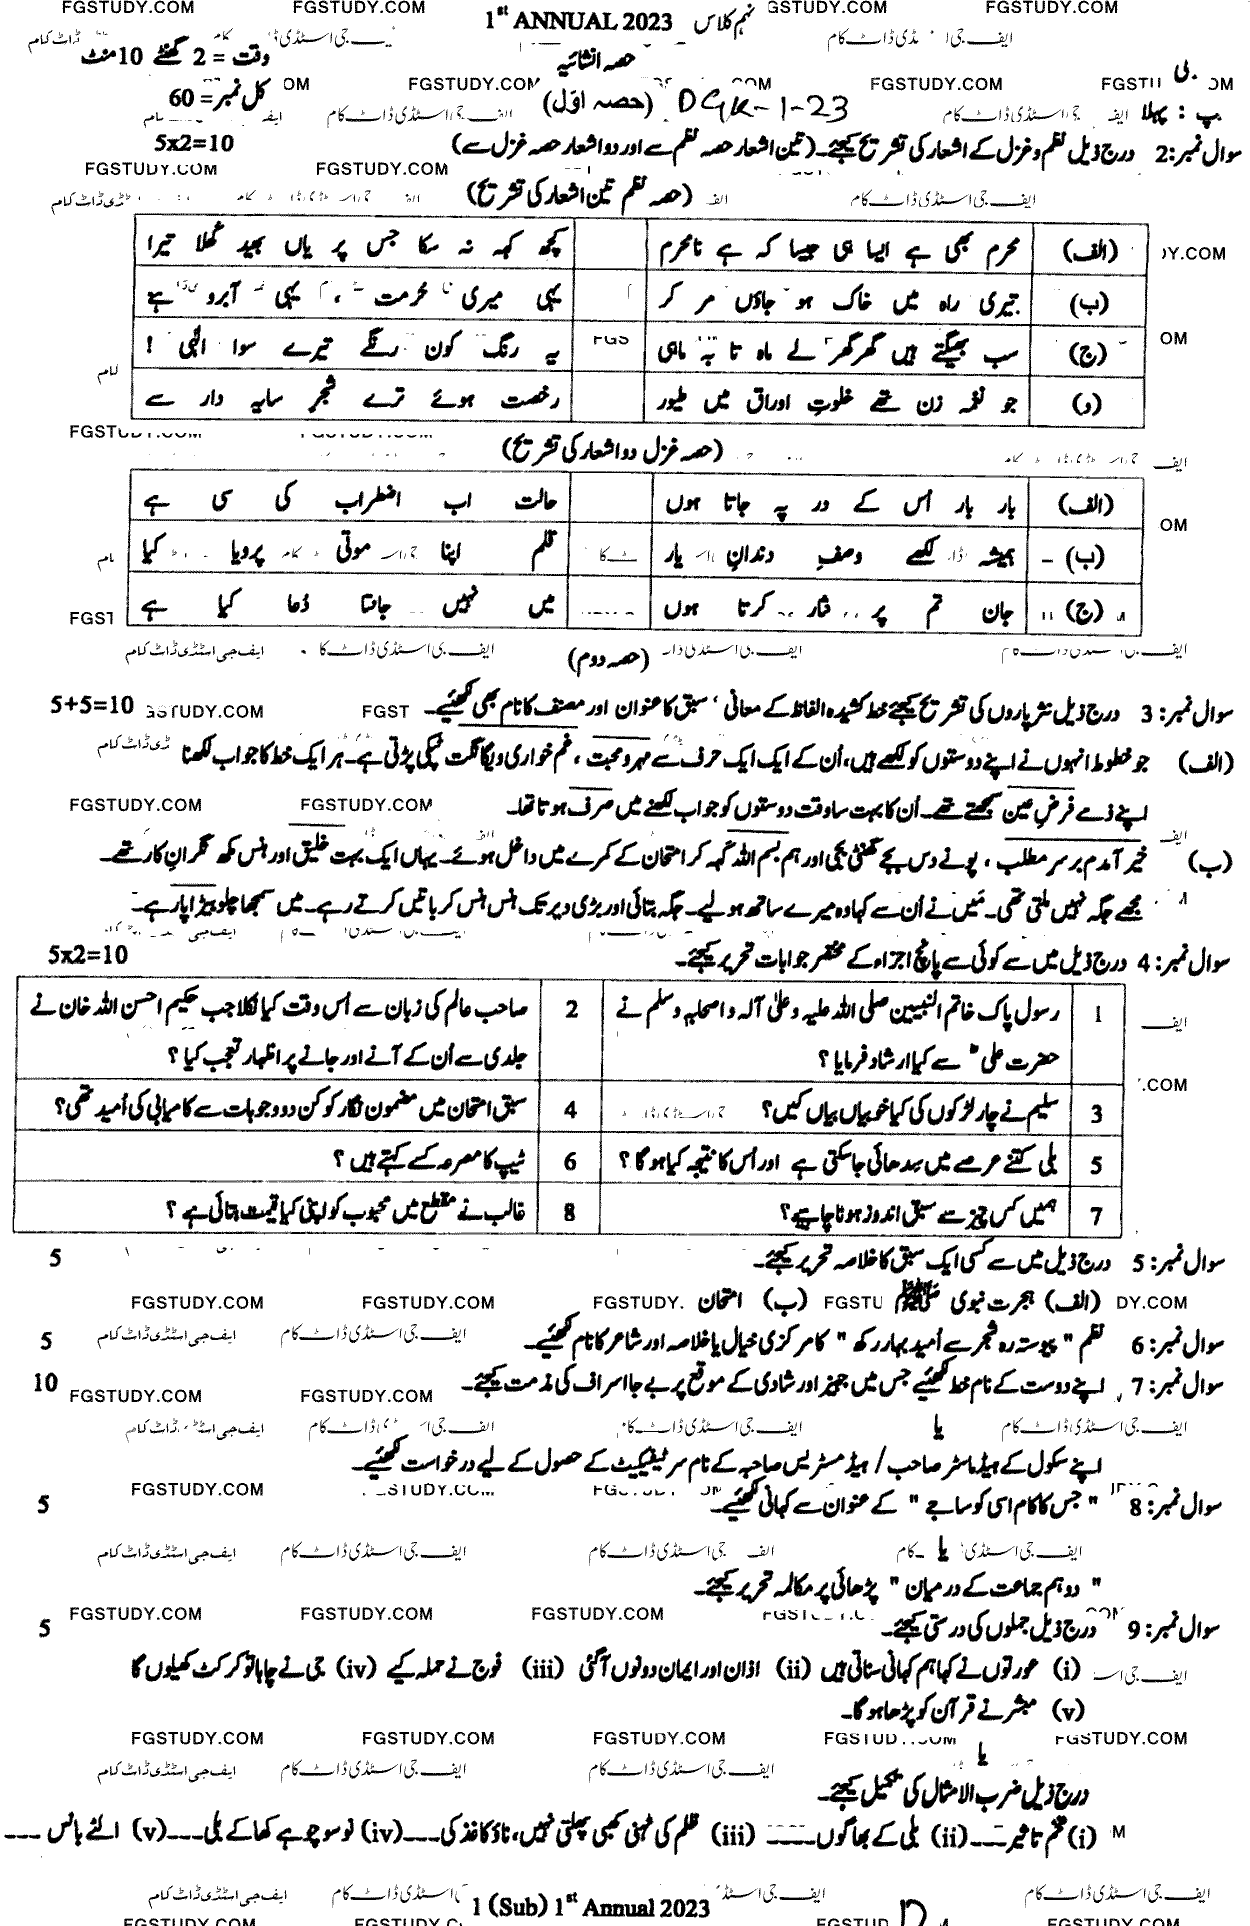 نہم کلاس 1st ANNUAL 2023
حصہ انشائیہ
وقت = 2 گھنٹے 10 منٹ
کل نمبر = 60
(حصہ اوّل) DGK-1-23
سوال نمبر: 2 درج ذیل نظم و غزل کے اشعار کی تشریح کیجئے۔ (تین اشعار حصہ نظم سے اور دو اشعار حصہ غزل سے) 5x2=10
(حصہ نظم تین اشعار کی تشریح)
(الف) محرم بھی ہے ایسا ہی جیسا کہ ہے نامحرم کچھ کہہ نہ سکا جس پر یاں بھید کُھلا تیرا
(ب) تیری راہ میں خاک ہو جاؤں مر کر یہی میری حُرمت، یہی آبرو ہے
(ج) سب بھیگتے ہیں گھر گھر لے ماہ تا بہ ماہی یہ رنگ کون رنگے تیرے سوا الٰہی !
(د) جو نغمہ زن تھے خلوتِ اوراق میں طیور رخصت ہوئے ترے شجر سایہ دار سے
(حصہ غزل دو اشعار کی تشریح)
(الف) بار بار اُس کے در پہ جاتا ہوں حالت اب اضطراب کی سی ہے
(ب) ہمیشہ لکھے وصفِ دندانِ یار قلم اپنا موتی پرویا کیا
(ج) جان تم پر نثار کرتا ہوں میں نہیں جانتا دُعا کیا ہے
(حصہ دوم)
سوال نمبر: 3 درج ذیل نثر پاروں کی تشریح کیجئے خط کشیدہ الفاظ کے معانی، سبق کا عنوان اور مصنف کا نام بھی لکھیئے۔ 5+5=10
(الف) جو خطوط انہوں نے اپنے دوستوں کو لکھے ہیں، اُن کے ایک ایک حرف سے مہر و محبت، غم خواری و یگانگت ٹپکی پڑتی ہے۔ ہر ایک خط کا جواب لکھنا
اپنے ذمے فرض عین سمجھتے تھے۔ اُن کا بہت سا وقت دوستوں کو جواب لکھنے میں صرف ہوتا تھا۔
(ب) خیر آمدم برسر مطلب، پونے دس بجے گھنٹی بجی اور ہم بسم اللہ کہہ کر امتحان کے کمرے میں داخل ہوئے۔ یہاں ایک بہت خلیق اور ہنس مکھ نگران کار تھے۔
مجھے جگہ نہیں ملتی تھی۔ میں نے اُن سے کہا وہ میرے ساتھ ہو لیے۔ جگہ بتائی اور بڑی دیر تک ہنس ہنس کر باتیں کرتے رہے۔ میں سمجھا چلو بیڑا پار ہے۔
سوال نمبر: 4 درج ذیل میں سے کوئی سے پانچ اجزاء کے مختصر جوابات تحریر کیجئے۔ 5x2=10
1 رسول پاک خاتم النبیین صلی اللہ علیہ وعلیٰ آلہ واصحابہ وسلم نے حضرت علیؓ سے کیا ارشاد فرمایا؟
2 صاحب عالم کی زبان سے اُس وقت کیا نکلا جب حکیم احسن اللہ خان نے جلدی سے اُن کے آنے اور جانے پر اظہار تعجب کیا؟
3 سلیم نے چار لڑکوں کی کیا خوبیاں بیاں کیں؟
4 سبق امتحان میں مضمون نگار کو کن دو وجوہات سے کامیابی کی اُمید تھی؟
5 بلی کتنے عرصے میں سدھائی جا سکتی ہے اور اُس کا نتیجہ کیا ہوگا؟
6 ٹیپ کا مصرعہ کسے کہتے ہیں؟
7 ہمیں کس چیز سے سبق اندوز ہونا چاہیے؟
8 غالب نے مقطع میں محبوب کو اپنی کیا قیمت بتائی ہے؟
سوال نمبر: 5 درج ذیل میں سے کسی ایک سبق کا خلاصہ تحریر کیجئے۔ 5
(الف) ہجرت نبوی ﷺ (ب) امتحان
سوال نمبر: 6 نظم " پیوستہ رہ شجر سے اُمید بہار رکھ " کا مرکزی خیال یا خلاصہ اور شاعر کا نام لکھیئے۔ 5
سوال نمبر: 7 اپنے دوست کے نام خط لکھیئے جس میں جہیز اور شادی کے موقع پر بے جا اسراف کی مذمت کیجئے۔ 10
یا
اپنے سکول کے ہیڈ ماسٹر صاحب / ہیڈ مسٹریس صاحبہ کے نام سرٹیفکیٹ کے حصول کے لیے درخواست لکھیئے۔
سوال نمبر: 8 " جس کا کام اسی کو ساجے " کے عنوان سے کہانی لکھیئے۔ 5
یا
" دو ہم جماعت کے درمیان " پڑھائی پر مکالمہ تحریر کیجئے۔
سوال نمبر: 9 درج ذیل جملوں کی درستی کیجئے۔ 5
(i) عورتوں نے کہا ہم کہانی سناتی ہیں (ii) اذان اور ایمان دونوں آگئی (iii) فوج نے حملہ کیے (iv) جی نے چاہا تو کرکٹ کھیلوں گا
(v) مبشر نے قرآن کو پڑھا ہو گا۔
یا
درج ذیل ضرب الامثال کی تکمیل کیجئے۔
(i) تخم تاثیر --- (ii) بلی کے بھاگوں ---- (iii) ظلم کی ٹہنی کبھی پھلتی نہیں، ناؤ کاغذ کی --- (iv) نو سو چوہے کھا کے بلی --- (v) الٹے بانس ---
1 (Sub) 1st Annual 2023